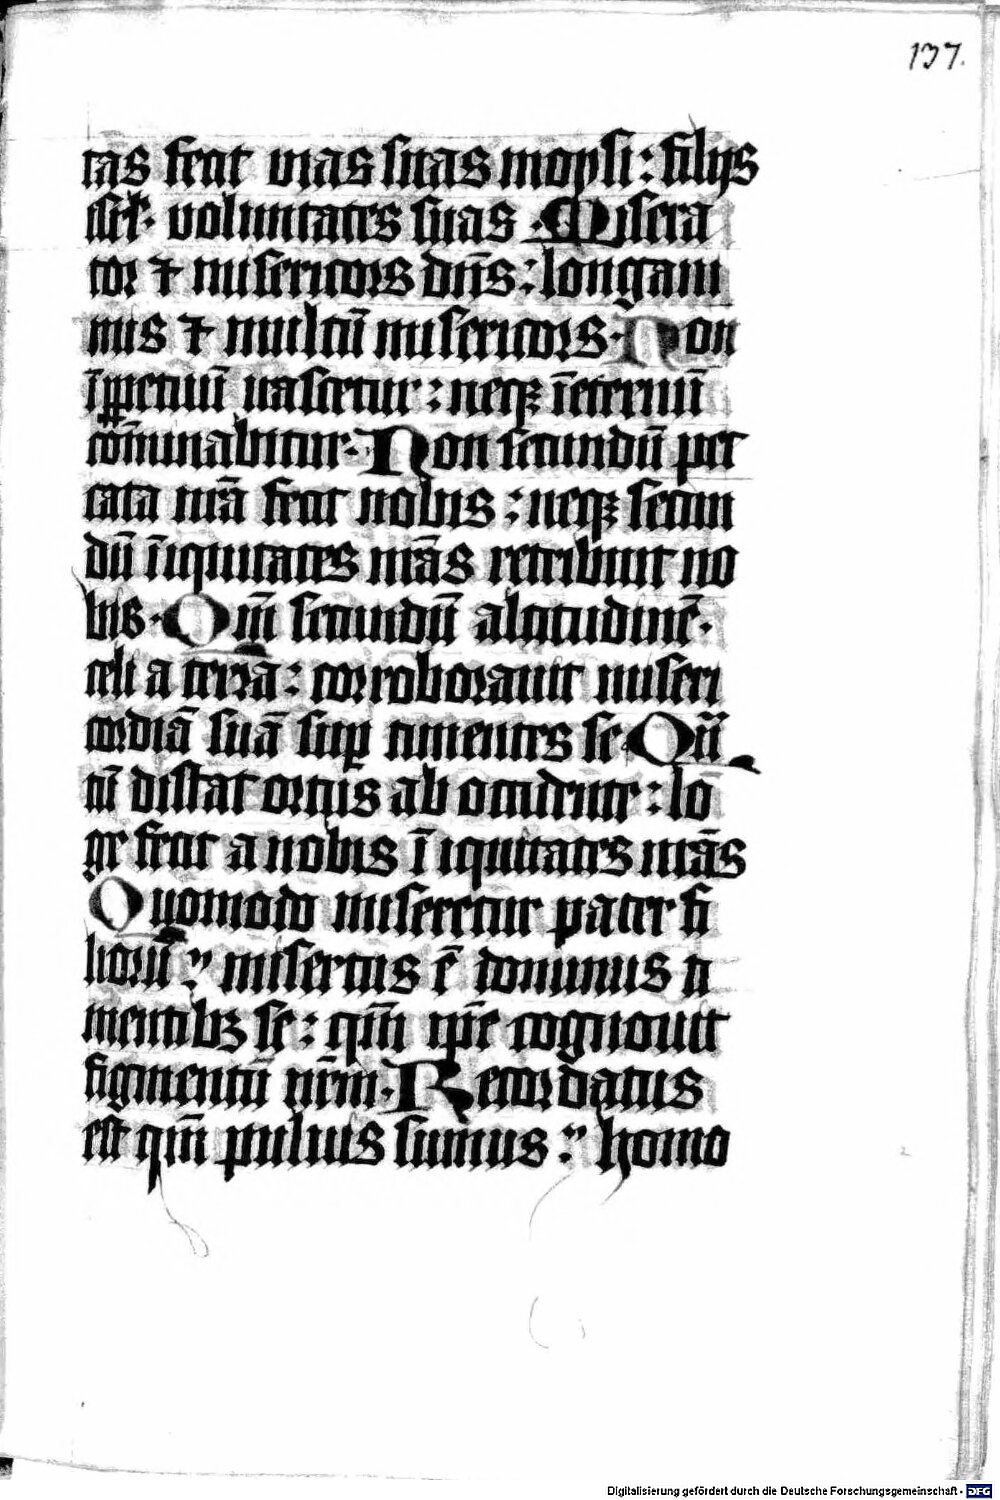 137.
tas fecit vias suas moysi : filijs
isrl̄. voluntates suas . Misera
tor ⁊ misericors dn̄s : longani
mis ⁊ multū misericors . Non
īꝑpetuū irascetur : neqꝫ īeternū
cōminabitur . Non secundū pec
cata nr̄a fecit nobis : neqꝫ secun
dū īiquitates nr̄as retribuit no
bis . Qm̄ secundū altitudinē .
celi a terra : corroborauit miseri
cordiā suā sup̄ timentes se Qū
tū distat ortus ab occidente : lō
ge fecit a nobis ī iquitates nr̄as
Quomodo miseretur pater fi
liorū : misertus ē dominus ti
mentibꝫ se : qm̄ ip̄e cognouit
figmentū nr̄m . Recordatus
est qm̄ puluis sumus : homo
Digitalisierung gefördert durch die Deutsche Forschungsgemeinschaft - DFG